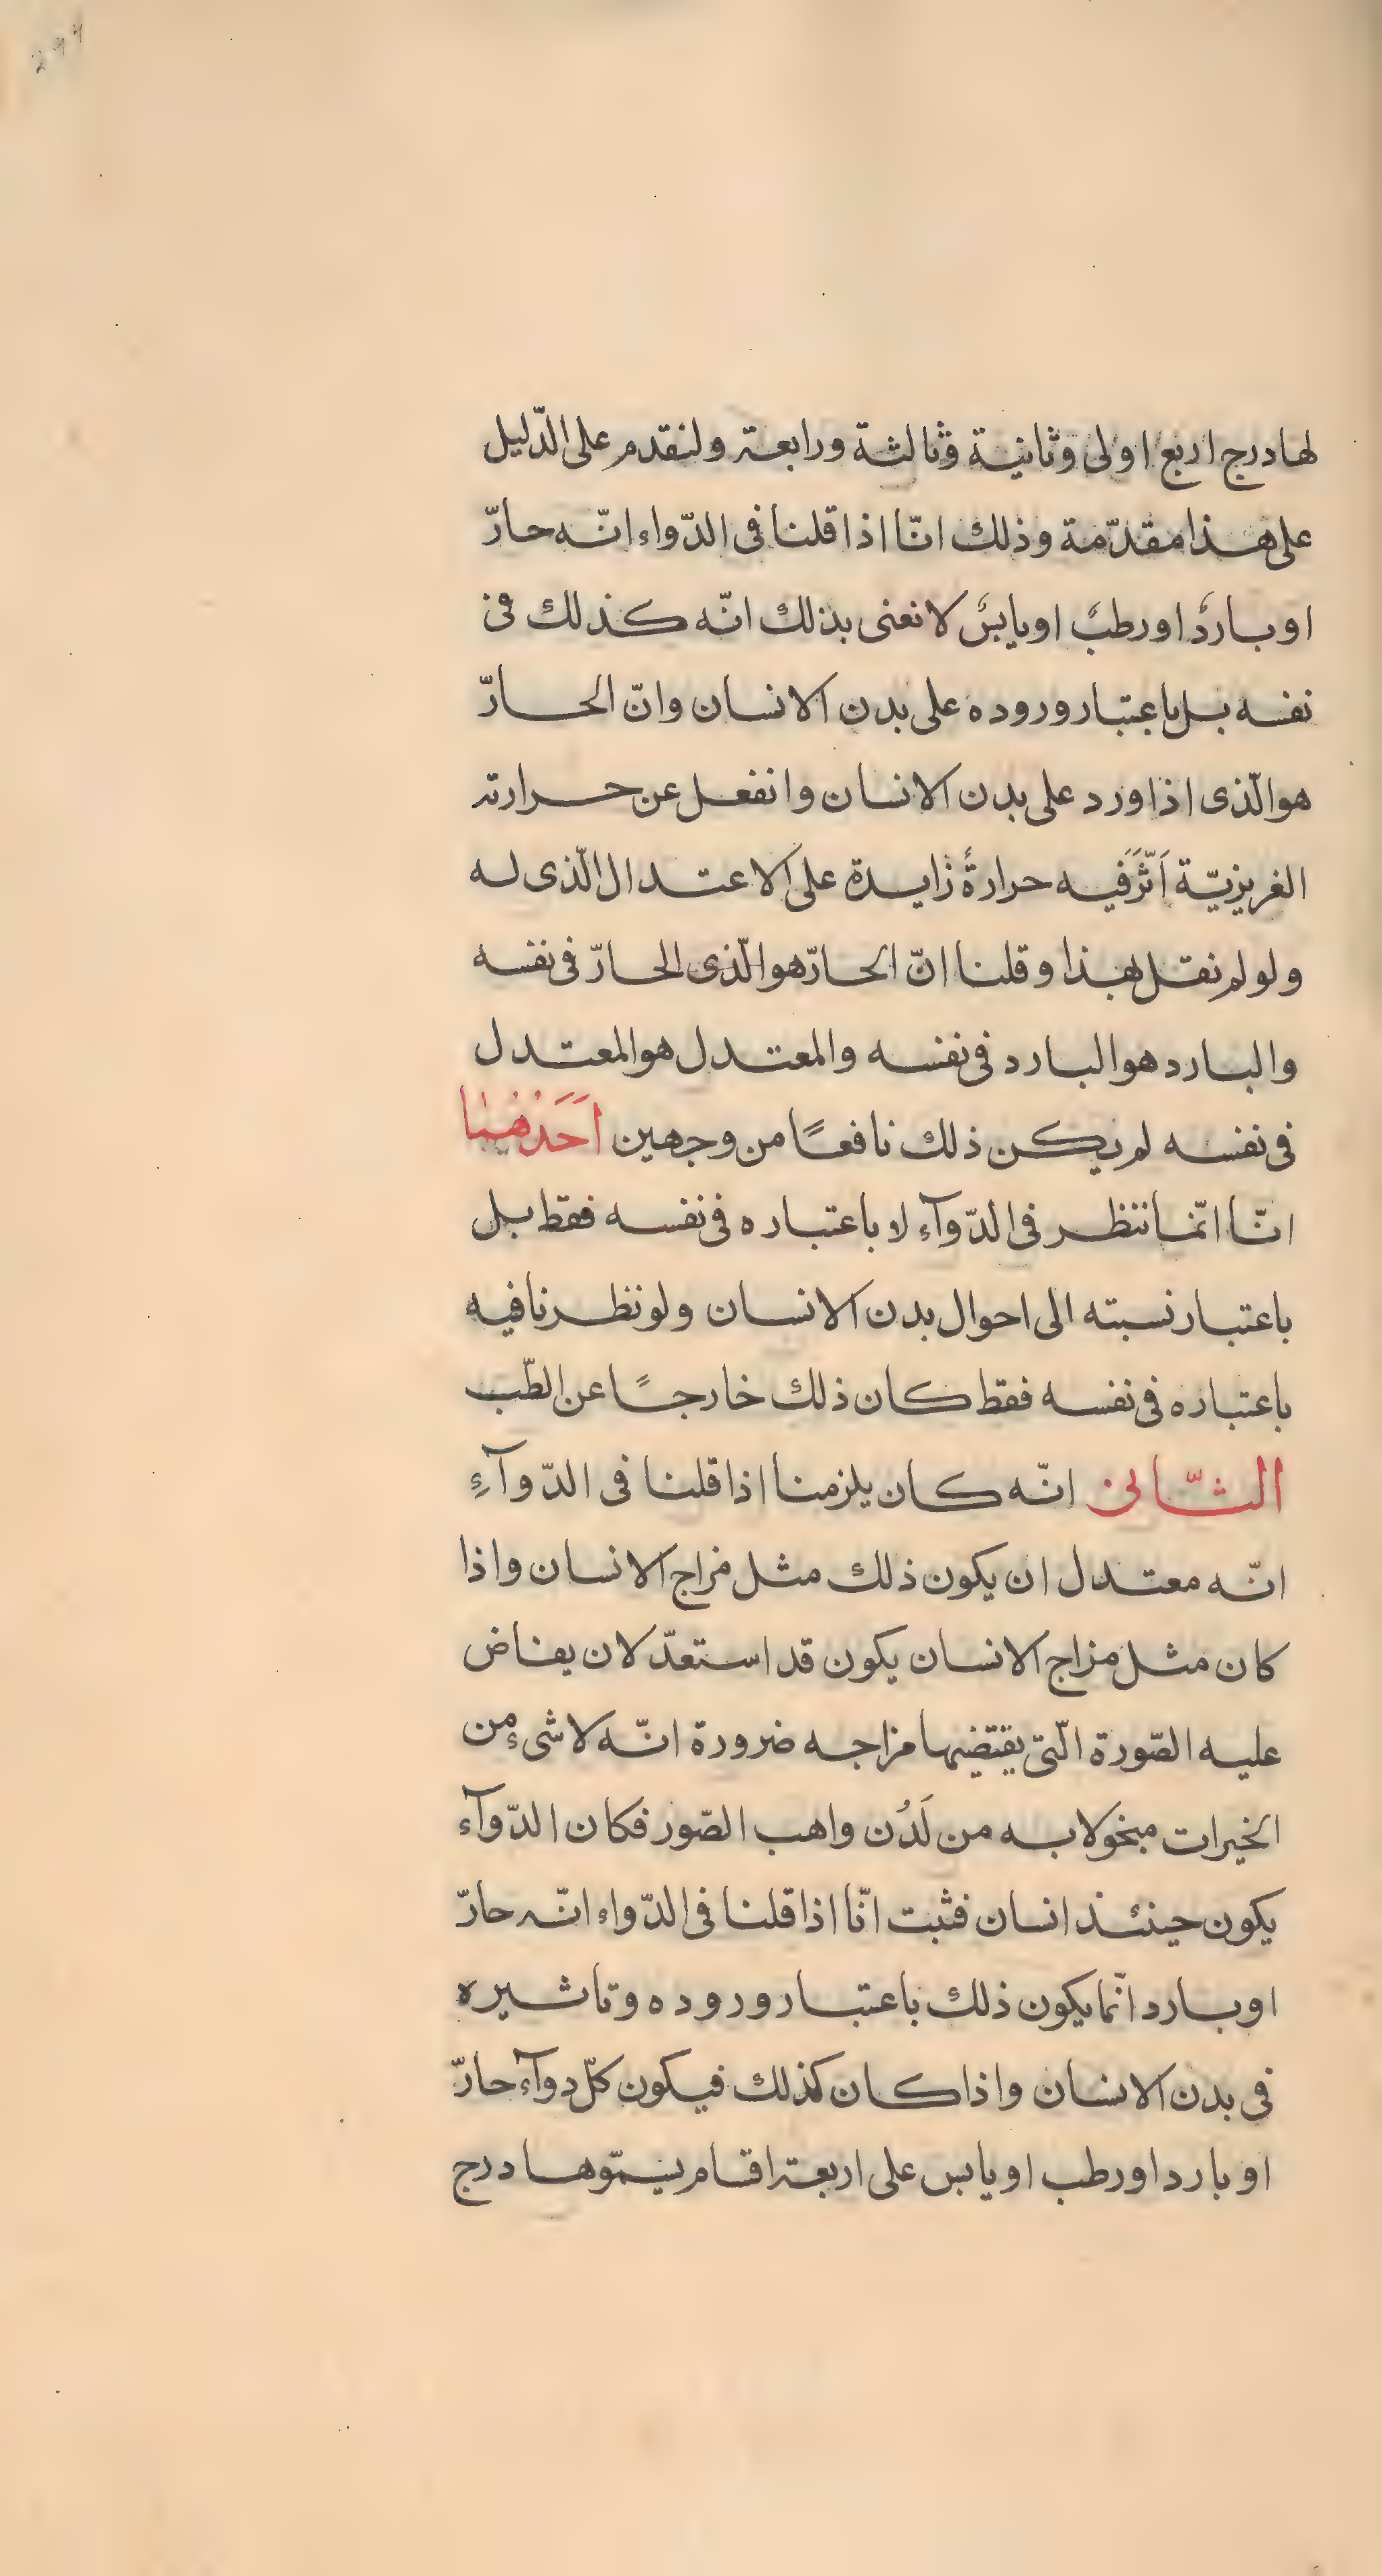 لها درج اربع اولى وثانية وثالثة ورابعة ولنقدم على الدّليل
على هذا مقدّمة وذلك انّا اذا قلنا فى الدّواء انّه حارّ
او باردٌ او رطبٌ او يابسٌ لا نعنى بذلك انّه كذلك فى
نفسه بل باعتبار وروده على بدن الانسان وانّ الحارّ
هو الّذى اذا ورد على بدن الانسان وانفعل عن حرارته
الغريزيّة اَثَّرَ فيه حرارةً زايدة على الاعتدال الّذى له
ولو لم نقل بهذا وقلنا انّ الحارّ هو الّذى الحارّ فى نفسه
والبارد هو البارد فى نفسه والمعتدل هو المعتدل
فى نفسه لم يكن ذلك نافعًا من وجهين اَحَدُهُمَا
انّا انّما ننظر فى الدّوآء لا باعتباره فى نفسه فقط بل
باعتبار نسبته الى احوال بدن الانسان ولو نظرنا فيه
باعتباره فى نفسه فقط كان ذلك خارجًا عن الطّب
الثّانى انّه كان يلزمنا اذا قلنا فى الدّوآءِ
انّه معتدل ان يكون ذلك مثل مزاج الانسان واذا
كان مثل مزاج الانسان يكون قد استعدّ لان يفاض
عليه الصّورة الّتى يقتضيها مزاجه ضرورة انّه لا شىء من
الخيرات مبخولا به من لَدُن واهب الصّور فكان الدّوآء
يكون حينئذ انسان فثبت انّا اذا قلنا فى الدّواء انّه حارّ
او بارد انّما يكون ذلك باعتبار وروده وتاثيره
فى بدن الانسان واذا كان كذلك فيكون كلّ دوآء حارّ
او بارد او رطب او يابس على اربعة اقسام يسمّوها درج